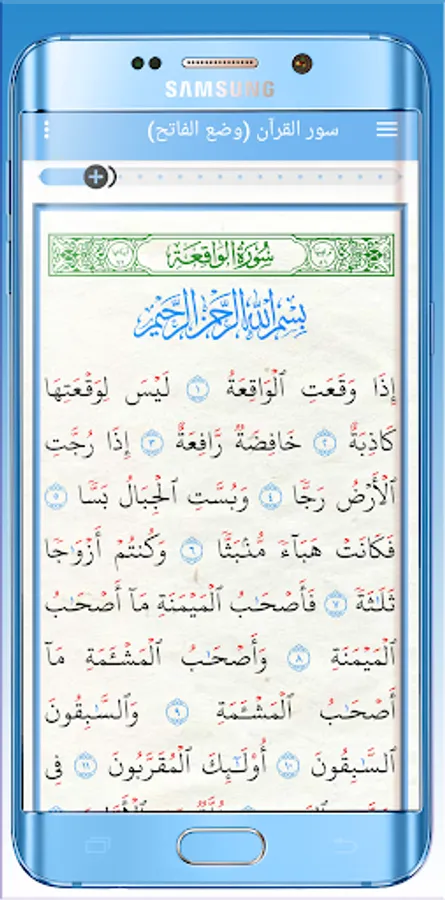 SAMSUNG
سور القرآن (وضع الفاتح)
سُورَةُ الوَاقِعَةِ
بِسْمِ اللَّهِ الرَّحْمَٰنِ الرَّحِيمِ
إِذَا وَقَعَتِ ٱلْوَاقِعَةُ ١ لَيْسَ لِوَقْعَتِهَا
كَاذِبَةٌ ٢ خَافِضَةٌ رَّافِعَةٌ ٣ إِذَا رُجَّتِ
ٱلْأَرْضُ رَجًّا ٤ وَبُسَّتِ ٱلْجِبَالُ بَسًّا ٥
فَكَانَتْ هَبَآءً مُّنۢبَثًّا ٦ وَكُنتُمْ أَزْوَٰجًا
ثَلَٰثَةً ٧ فَأَصْحَٰبُ ٱلْمَيْمَنَةِ مَآ أَصْحَٰبُ
ٱلْمَيْمَنَةِ ٨ وَأَصْحَٰبُ ٱلْمَشْـَٔمَةِ مَآ
أَصْحَٰبُ ٱلْمَشْـَٔمَةِ ٩ وَٱلسَّٰبِقُونَ
ٱلسَّٰبِقُونَ ١٠ أُو۟لَٰٓئِكَ ٱلْمُقَرَّبُونَ ١١ فِى